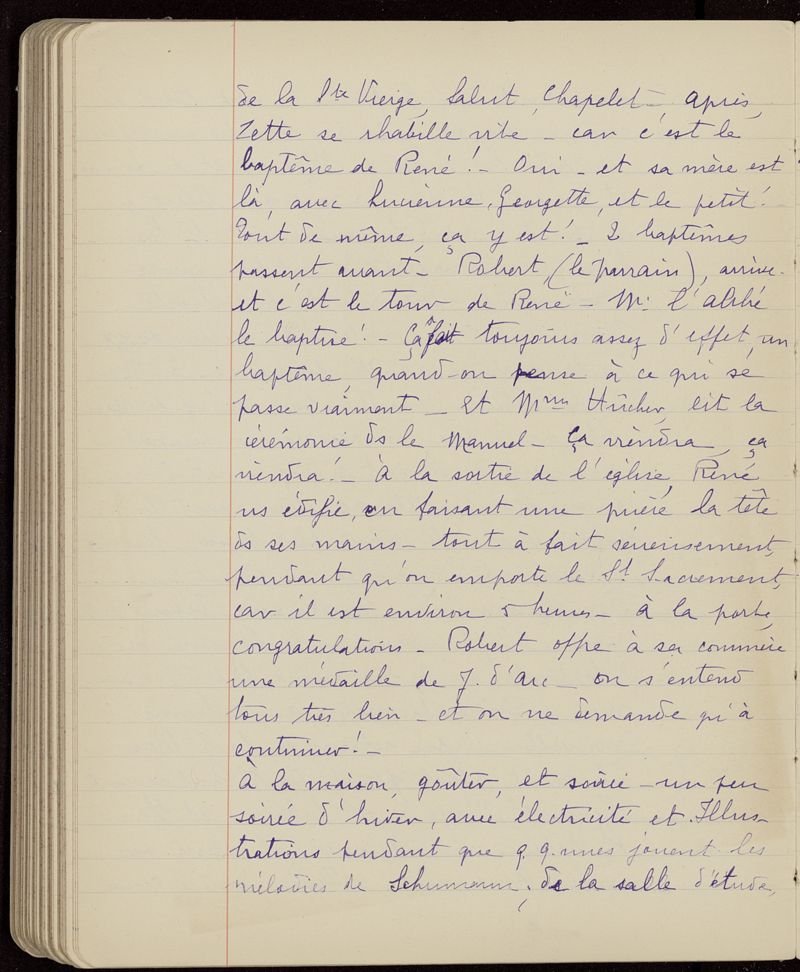 de la Ste Vierge, Salut, Chapelet - après,
Zette se rhabille vite - car c'est le
baptême de René! - Oui - et sa mère est
là, avec Lucienne, Georgette, et le petit!
Tout de même, ça y est! - 2 baptêmes
passent avant - Robert, (le parrain), arrive -
et c'est le tour de René - Mr l'abbé
le baptise! - Ça fait toujours assez d'effet, un
baptême, quand on pense à ce qui se
passe vraiment - Et Mme lit la
cérémonie ds le Manuel - ça viendra, ça
viendra! - À la sortie de l'église, René
ns édifie, en faisant une prière la tête
ds ses mains - tout à fait sérieusement,
pendant qu'on emporte le St Sacrement,
car il est environ 5 heures - à la porte,
congratulations - Robert offre à sa commère
une médaille de J. d'Arc - on s'entend
tous très bien - et on ne demande qu'à
continuer! -
À la maison, goûter, et soirée - un peu
soirée d'hiver, avec électricité et Illus-
trations pendant que q.q. unes jouent les
mélodies de Schumann, de la salle d'étude,